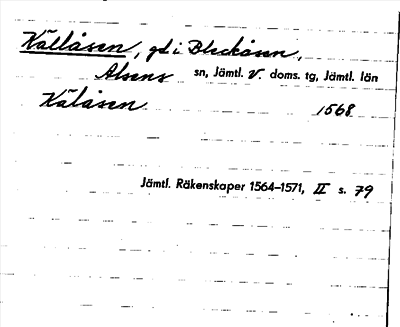 Källåsen, gd i Bleckåsen,
Alsens sn, Jämtl. V. doms. tg, Jämtl. län
Kälåsen 1568
Jämtl. Räkenskaper 1564–1571, II s. 79